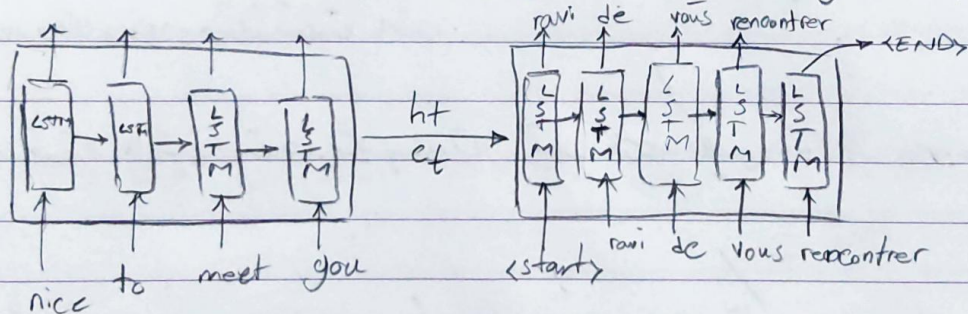 ravi de vous rencontrer
<END>
LSTM LSTM LSTM LSTM
ht
ct
LSTM LSTM LSTM LSTM LSTM
nice to meet you
<start> ravi de vous rencontrer